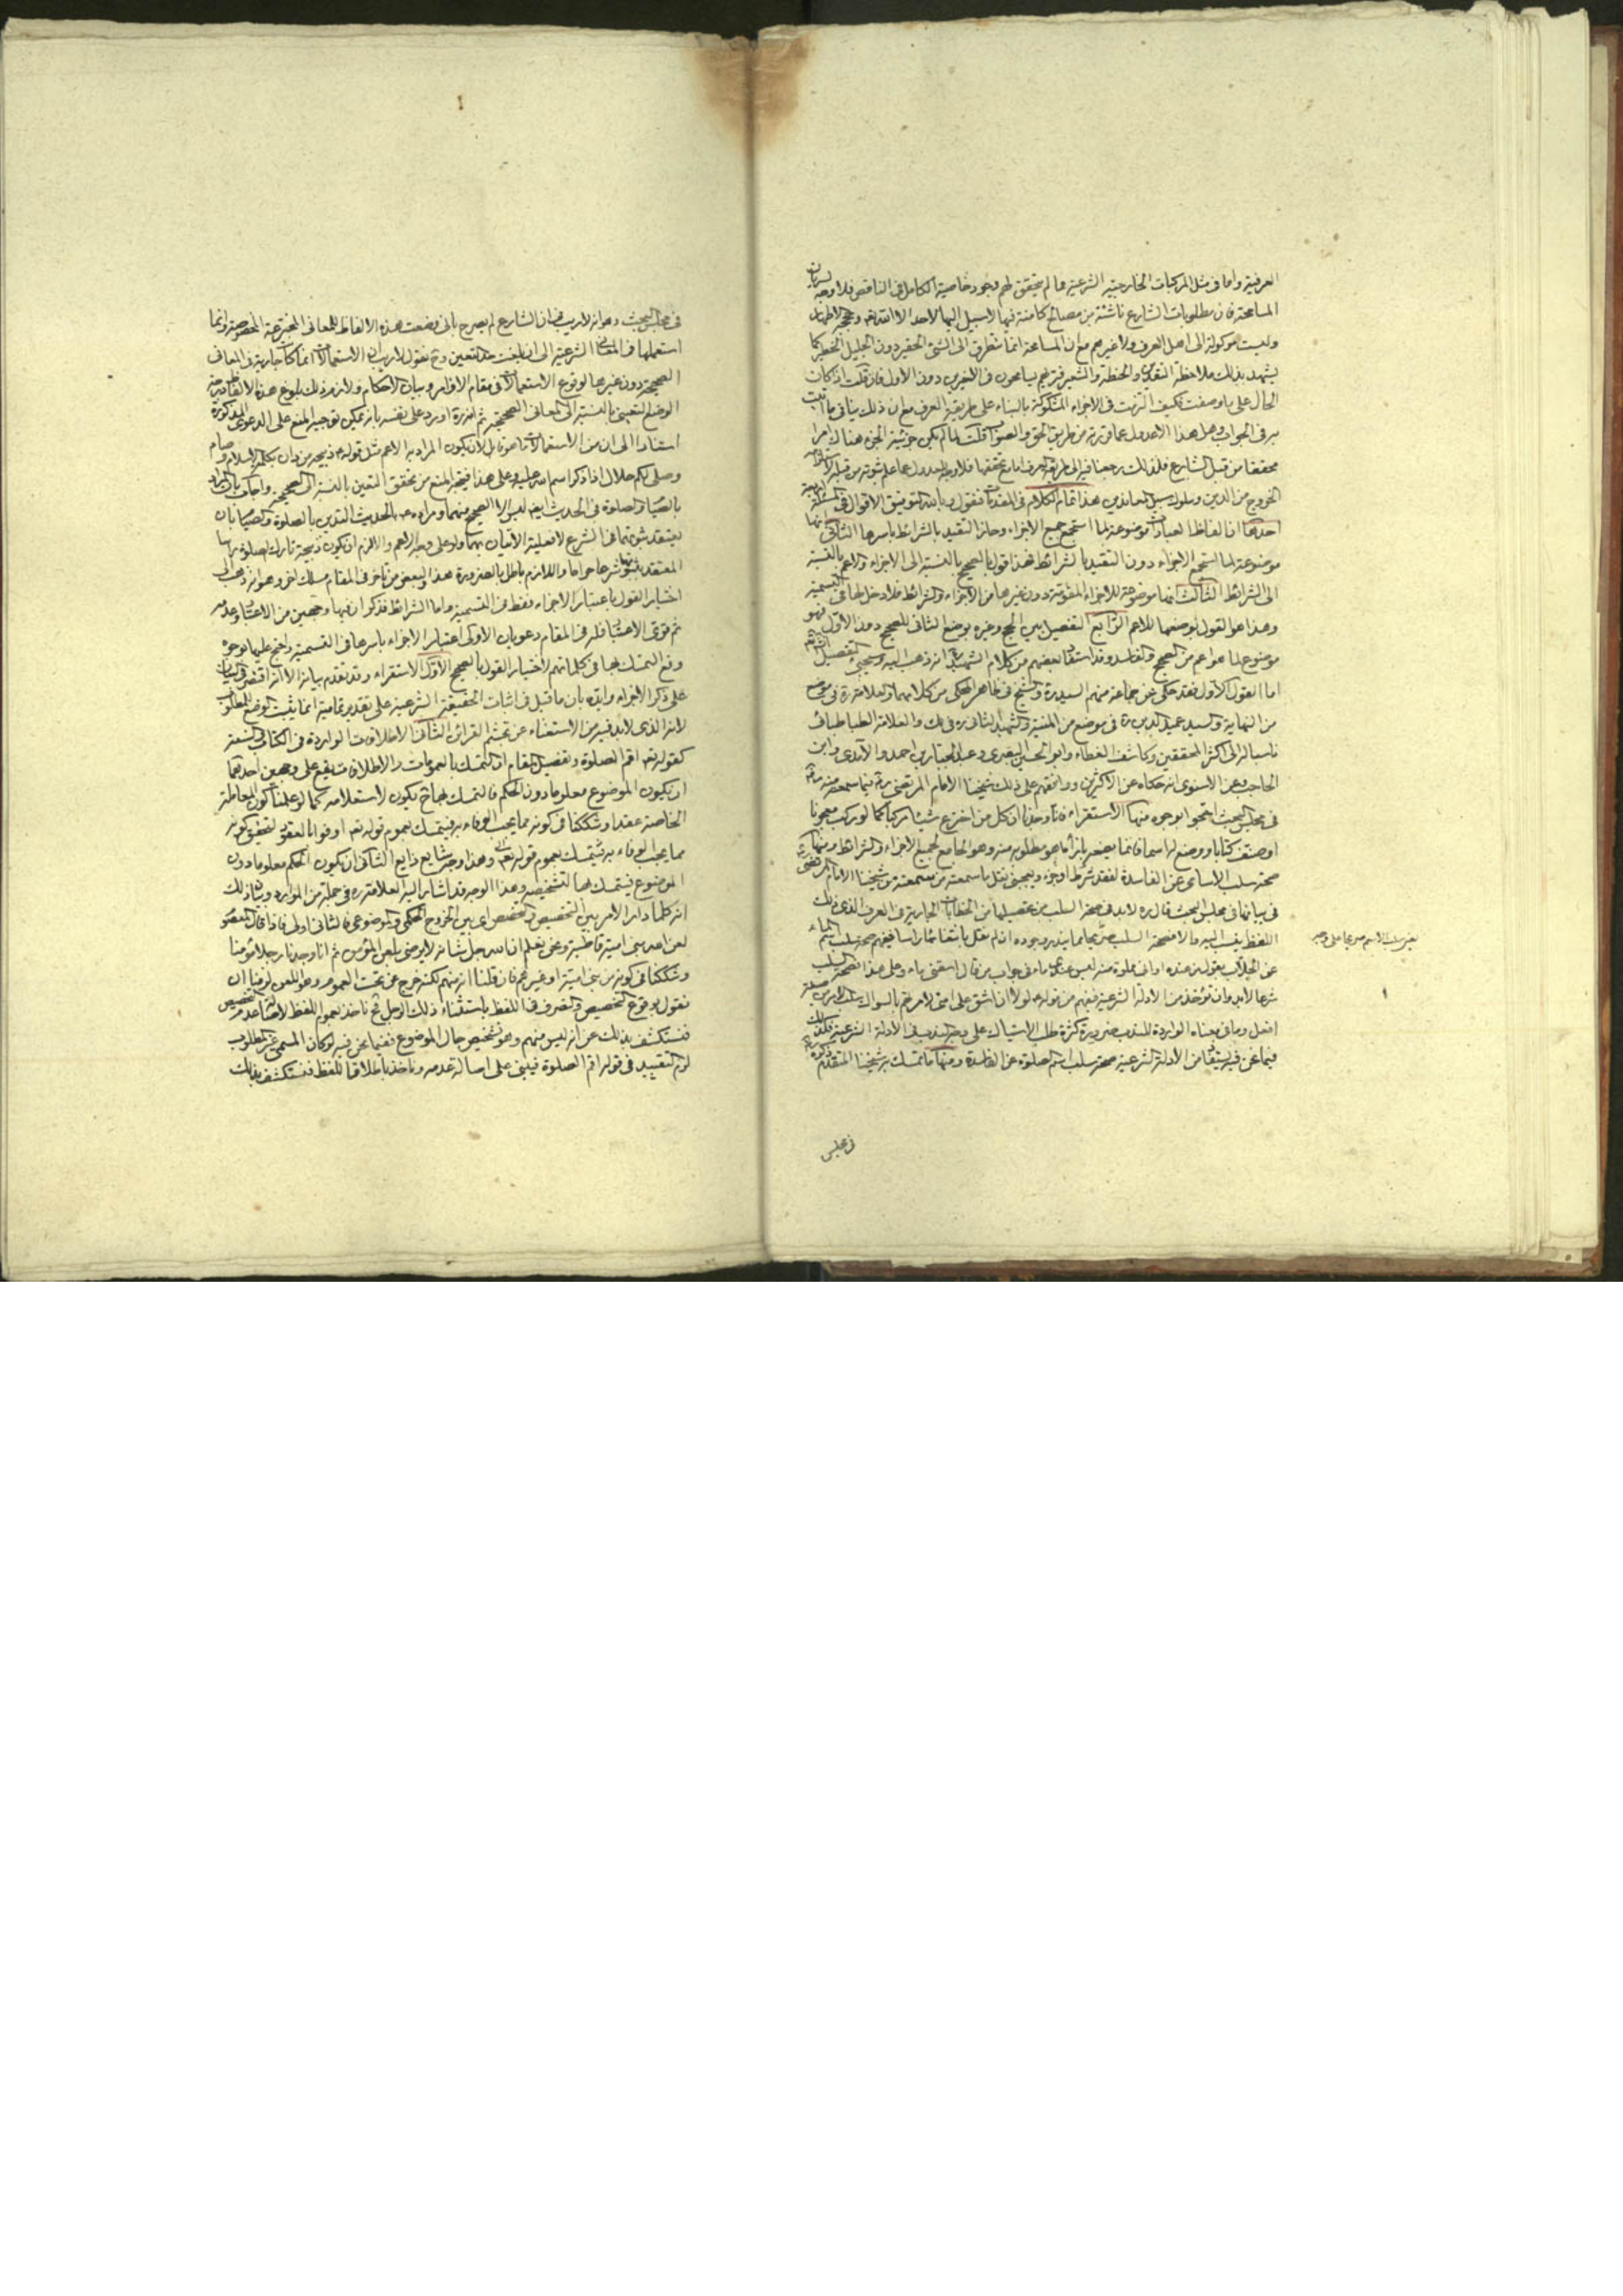 العرفية واما فى مثل المركبات الخارجية الشرعية مما لم يتحقق لهم وجود خاصية الكامل فى الناقص فلا وجه لسريان
المسامحة فان مطلوبات الشارع ناشئة من مصالح كامنة فيها لا سبيل اليها لاحد الا الله
وليست موكولة الى اهل العرف ولا غيرهم مع ان المسامحة انما تتطرق الى الشئ الحقير دون الجليل الخطير كما
يشهد بذلك ملاحظة النقدين والحنطة والشعير فتريهم يسامحون فى الاخيرين دون الاول فان قلت اذا كان
الحال على ما وصفت فكيف التزمت فى الاجزاء المشكوكة بالبناء على طريقة العرف مع ان ذلك ينافى ما اثبت
به فى الجواب وهل هذا الا عدول عما قررته من طريق الحق والصواب قلت لما لم يكن جزئية الجزء هناك امرا
محققا من قبل الشارع فلذلك رجعنا فيه الى طريقة العرف اما مع تحققها فلا وجه للعدول عما علم ثبوته من قبل
الخروج من الدين وسلوك سبيل المعاندين هذا تمام الكلام فى المقدمات فنقول وبالله التوفيق الاقوال فى المسئلة اربعة
احدها ان الفاظ العبادات موضوعة لما استجمع جميع الاجزاء وحاز التقييد بالشرائط باسرها الثانى انها
موضوعة لما استجمع الاجزاء دون التقييد بالشرائط فهذا قول بالصحيح بالنسبة الى الاجزاء والاعم بالنسبة
الى الشرائط الثالث انها موضوعة للاجزاء المقومة دون غيرها من الاجزاء والشرائط فلا دخل لها فى التسمية
وهذا هو القول بوضعها للاعم الرابع التفصيل بين الحج وغيره بوضع الثانى للصحيح دون الاول فهو
موضوع لما هو اعم من الصحيح والفاسد وقد استفاد بعضهم من كلام الشهيد انه ذهب اليه وسيجئ التفصيل
اما القول الاول فقد حكى عن جماعة منهم السيد ره والشيخ فى ظاهر المحكى من كلامهما والعلامة ره فى موضع
من النهاية والسيد عميد الدين ره فى موضع من المنية والشهيد الثانى ره فى لك والعلامة الطباطبائى
ناسبا له الى اكثر المحققين وكاشف الغطاء وابو الحسين البصرى وعبد الجبار بن احمد والآمدى وابن
الحاجب وعن الاسنوى انه حكاه عن الاكثرين ووافقهم على ذلك شيخنا الامام المرتضى ره فيما سمعته منه
فى مجلس البحث احتجوا بوجوه منها الاستقراء فانا وجدنا ان كل من اخترع شيئا مركبا كما لو ركب معجونا
او صنف كتابا ووضع له اسما فانما يضعه بازاء ما هو مطلوبه منه وهو الجامع لجميع الاجزاء والشرائط ومنها
صحة سلب الاسامى عن الفاسدة لفقد شرط او جزء ويعجبنى نقل ما سمعته من شيخنا الامام المرتضى
فى بيانها فى مجلس البحث قال ره لا بد فى صحة السلب من تحصيلها من الخطابات الجارية فى العرف الذى ذلك
اللفظ ينسب اليه
عن الجلاب بقوله من عنده اوانى مملوة منه ليس عندى ماء فى جواب من قال اسقنى ماء وعلى هذا فصحة السلب
شرعا لا بد وان تؤخذ من الادلة الشرعية فنفهم من قوله لولا ان اشق على امتى لامرتهم بالسواك
افعل وما فى معناه الواردة للندب ضرورة كثرة طلب الاستياك على وجه الندب فى الادلة الشرعية فكذلك
فيما نحن فيه يستفاد من الادلة الشرعية صحة سلب اسم الصلوة عن الفاسدة ومنها ما تمسك به شيخنا المتقدم ذكره
فى مجلس
فى مجلس البحث وهو انه لا ريب فى ان الشارع لم يصرح بانى وضعت هذه الالفاظ للمعانى المخترعة المخصوصة وانما
استعملها فى المعانى الشرعية الى ان بلغت حد التعين وح نقول لا ريب ان الاستعمالات انما كانت جارية فى المعانى
الصحيحة دون غيرها لوقوع الاستعمالات فى مقام الاوامر وبيان الاحكام ولازم ذلك بلوغ هذه الالفاظ درجة
الوضع التعينى بالنسبة الى المعانى الصحيحة ثم انه ره اورد على نفسه بانه يمكن توجيه المنع على الدعوى المذكورة
استنادا الى ان من الاستعمالات ما هو قابل لان يكون المراد به الاعم مثل قوله ذبيحة من دان بكلمة الاسلام وصام
وصلى لكم حلال اذا ذكر اسم الله عليه وعلى هذا فيتجه المنع من تحقق التعين بالنسبة الى الصحيحة واجاب بان المراد
بالصيام والصلوة فى الحديث ايضا ليس الا الصحيح منهما ومراده بالحديث التدين بالصلوة والصيام بان
يعتقد ثبوتهما فى الشرع لا فعلية الاتيان بهما ولو على وجه الاعم والا لزم ان يكون ذبيحة تارك الصلوة
المعتقد بثبوتها شرعا حراما واللازم باطل بالضرورة هذا ولبعض من تأخر فى المقام مسلك اخر وهو انه ذهب الى
اختيار القول باعتبار الاجزاء فقط فى التسمية واما الشرائط فذكر ان فيها وجهين من الاعتبار وعدمه
ثم قوى الاعتبار فله فى المقام دعويان الاولى اعتبار الاجزاء باسرها فى التسمية واحتج عليها بوجوه
وقع التمسك بها فى كلماتهم لاختيار القول بالصحيح الاول الاستقراء وقد تقدم بيانه الا انه اقتصر فى البيان
على ذكر الاجزاء وايده بان ما قيل فى اثبات الحقيقة الشرعية على تقدير تماميته انما يثبت الوضع للمطلوب
لانه الذى لابد فيه من الاستغناء عن تجشم القرائن الثانى الاطلاقات الواردة فى الكتاب والسنة
كقوله تعالى اقم الصلوة وتفصيل المقام ان التمسك بالعمومات والاطلاقات يقع على وجهين احدهما
ان يكون الموضوع معلوما دون الحكم فالتمسك بها ح يكون لاستعلامه كما لو علمنا كون المعاملة
الخاصة عقدا وشككنا فى كونه مما يجب الوفاء به فيتمسك بعموم قوله تعالى اوفوا بالعقود
مما يجب الوفاء به فيتمسك بعموم قوله تعالى وهذا وجه شايع ذايع الثانى ان يكون الحكم معلوما دون
الموضوع فيتمسك بها لتشخيصه وهذا الوجه قد اشار اليه العلامة ره فى جملة من الموارد وبيان ذلك
انه كلما دار الامر بين التخصيص والتخصص اى بين الخروج الحكمى والموضوعى فالثانى اولى فاذا قال المعصوم
لعن الله بنى امية قاطبة ونحن نعلم ان الله جل شانه لا يرضى بلعن المؤمن ثم انا وجدنا رجلا مؤمنا
وشككنا فى كونه من بنى امية او غيرهم فان قلنا انه منهم لكنه خرج عن تحت العموم وهو اللعن لزمنا ان
نقول بوقوع التخصيص والتصرف فى اللفظ باستثناء ذلك الرجل فح ناخذ بعموم اللفظ لاصالة عدم التخصيص
فنستكشف بذلك عن انه ليس منهم وهو تشخيص حال الموضوع ففيما نحن فيه لو كان المسمى غير المطلوب
لزم التقييد فى قوله اقم الصلوة فيبنى على اصالة عدمه وناخذ باطلاق اللفظ فنستكشف بذلك